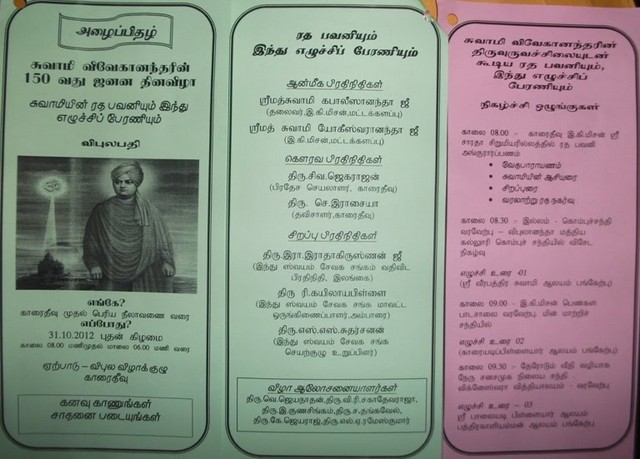 அழைப்பிதழ்
சுவாமி விவேகானந்தரின்
150 வது ஜனன தினவிழா
சுவாமியின் ரத பவனியும் இந்து
எழுச்சிப் பேரணியும்
விபுலபதி
எங்கே?
காரைதீவு முதல் பெரிய நீலாவணை வரை
எப்போது?
31.10.2012 புதன் கிழமை
காலை 08.00 மணிமுதல் மாலை 06.00 மணி வரை
ஏற்பாடு - விபுல விழாக்குழு
காரைதீவு
கனவு காணுங்கள்
சாதனை படையுங்கள்
ரத பவனியும்
இந்து எழுச்சிப் பேரணியும்
ஆன்மீக பிரதிநிதிகள்
ஸ்ரீமத்சுவாமி கபாலீஸானந்தா ஜீ
(தலைவர்,இ.கி.மிசன்,மட்டக்களப்பு)
ஸ்ரீமத் சுவாமி யோகீஸ்வரானந்தா ஜீ
(இ.கி.மிசன்,மட்டக்களப்பு)
கௌரவ பிரதிநிதிகள்
திரு.சிவ.ஜெகராஜன்
(பிரதேச செயலாளர், காரைதீவு)
திரு. செ.இராசையா
(தவிசாளர்,காரைதீவு)
சிறப்பு பிரதிநிதிகள்
திரு.இரா.இராதாகிருஸ்ணன் ஜீ
(இந்து ஸ்வயம் சேவக சங்கம் வதிவிட
பிரதிநிதி, இலங்கை)
திரு ரி.கயிலாயபிள்ளை
(இந்து ஸ்வயம் சேவக சங்க மாவட்ட
ஒருங்கிணைப்பாளர்,அம்பாரை)
திரு.எஸ்.எஸ்.சுதர்சனன்
(இந்து ஸ்வயம் சேவக சங்க
செயற்குழு உறுப்பினர்)
விழா ஆலோசனையாளர்கள்
திரு.வெ.ஜெயநாதன்,திரு.வி.ரி.சகாதேவராஜா,
திரு.இ.குணசிங்கம்,திரு.ச.நங்கவேல்,
திரு.கே.ஜெயராஜ்,திரு.எல்.ஏ.ரமேஸ்குமார்
சுவாமி விவேகானந்தரின்
திருவுருவச்சிலையுடன்
கூடிய ரத பவனியும்,
இந்து எழுச்சிப்
பேரணியும்
நிகழ்ச்சி ஒழுங்குகள்
காலை 08.00 - காரைதீவு இ.கி.மிசன் ஸ்ரீ
சாரதா சிறுமியரில்லத்தில் ரத பவனி
அங்குரார்ப்பணம்
• வேதபாராயணம்
• சுவாமியின் ஆசியுரை
• சிறப்புரை
• வரலாற்று ரத நகர்வு
காலை 08.30 - இல்லம் - கொம்புச்சந்தி
வரவேற்பு - விபுலானந்தா மத்திய
கல்லூரி கொம்புச் சந்தியில் விசேட
நிகழ்வு
எழுச்சி உரை -01
(ஸ்ரீ வீரபத்திர சுவாமி ஆலயம் பங்கேற்பு)
காலை 09.00 - இ.கி.மிசன் பெண்கள்
பாடசாலை வரவேற்பு மின் மாற்றிச்
சந்தியில்
எழுச்சி உரை 02
(காரையடிப்பிள்ளையார் ஆலயம் பங்கேற்பு)
காலை 09.30 - தேரோடும் வீதி வழியாக
நேரு சனசமூக நிலைய சந்தி -
விக்னேஸ்வரா வித்தியாலயம் - வரவேற்பு
எழுச்சி உரை - 03
ஸ்ரீ பாலையடி பிள்ளையார் ஆலயம்
பத்திரகாளியம்மன் ஆலயம் பங்கேற்பு.